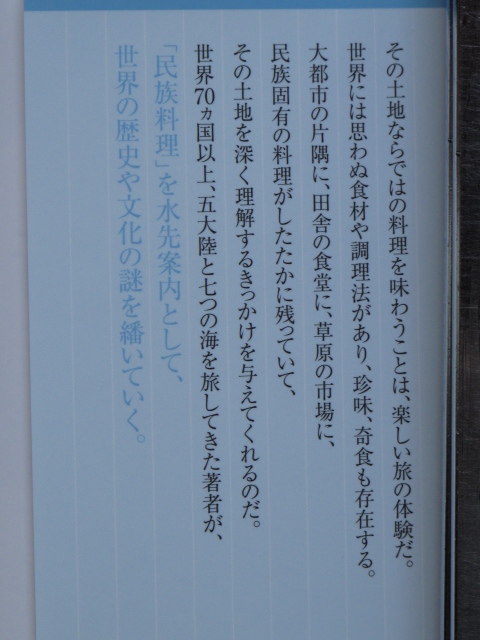 その土地ならではの料理を味わうことは、楽しい旅の体験だ。
世界には思わぬ食材や調理法があり、珍味、奇食も存在する。
大都市の片隅に、田舎の食堂に、草原の市場に、
民族固有の料理がしたたかに残っていて、
その土地を深く理解するきっかけを与えてくれるのだ。
世界70ヵ国以上、五大陸と七つの海を旅してきた著者が、
「民族料理」を水先案内として、
世界の歴史や文化の謎を繙いていく。